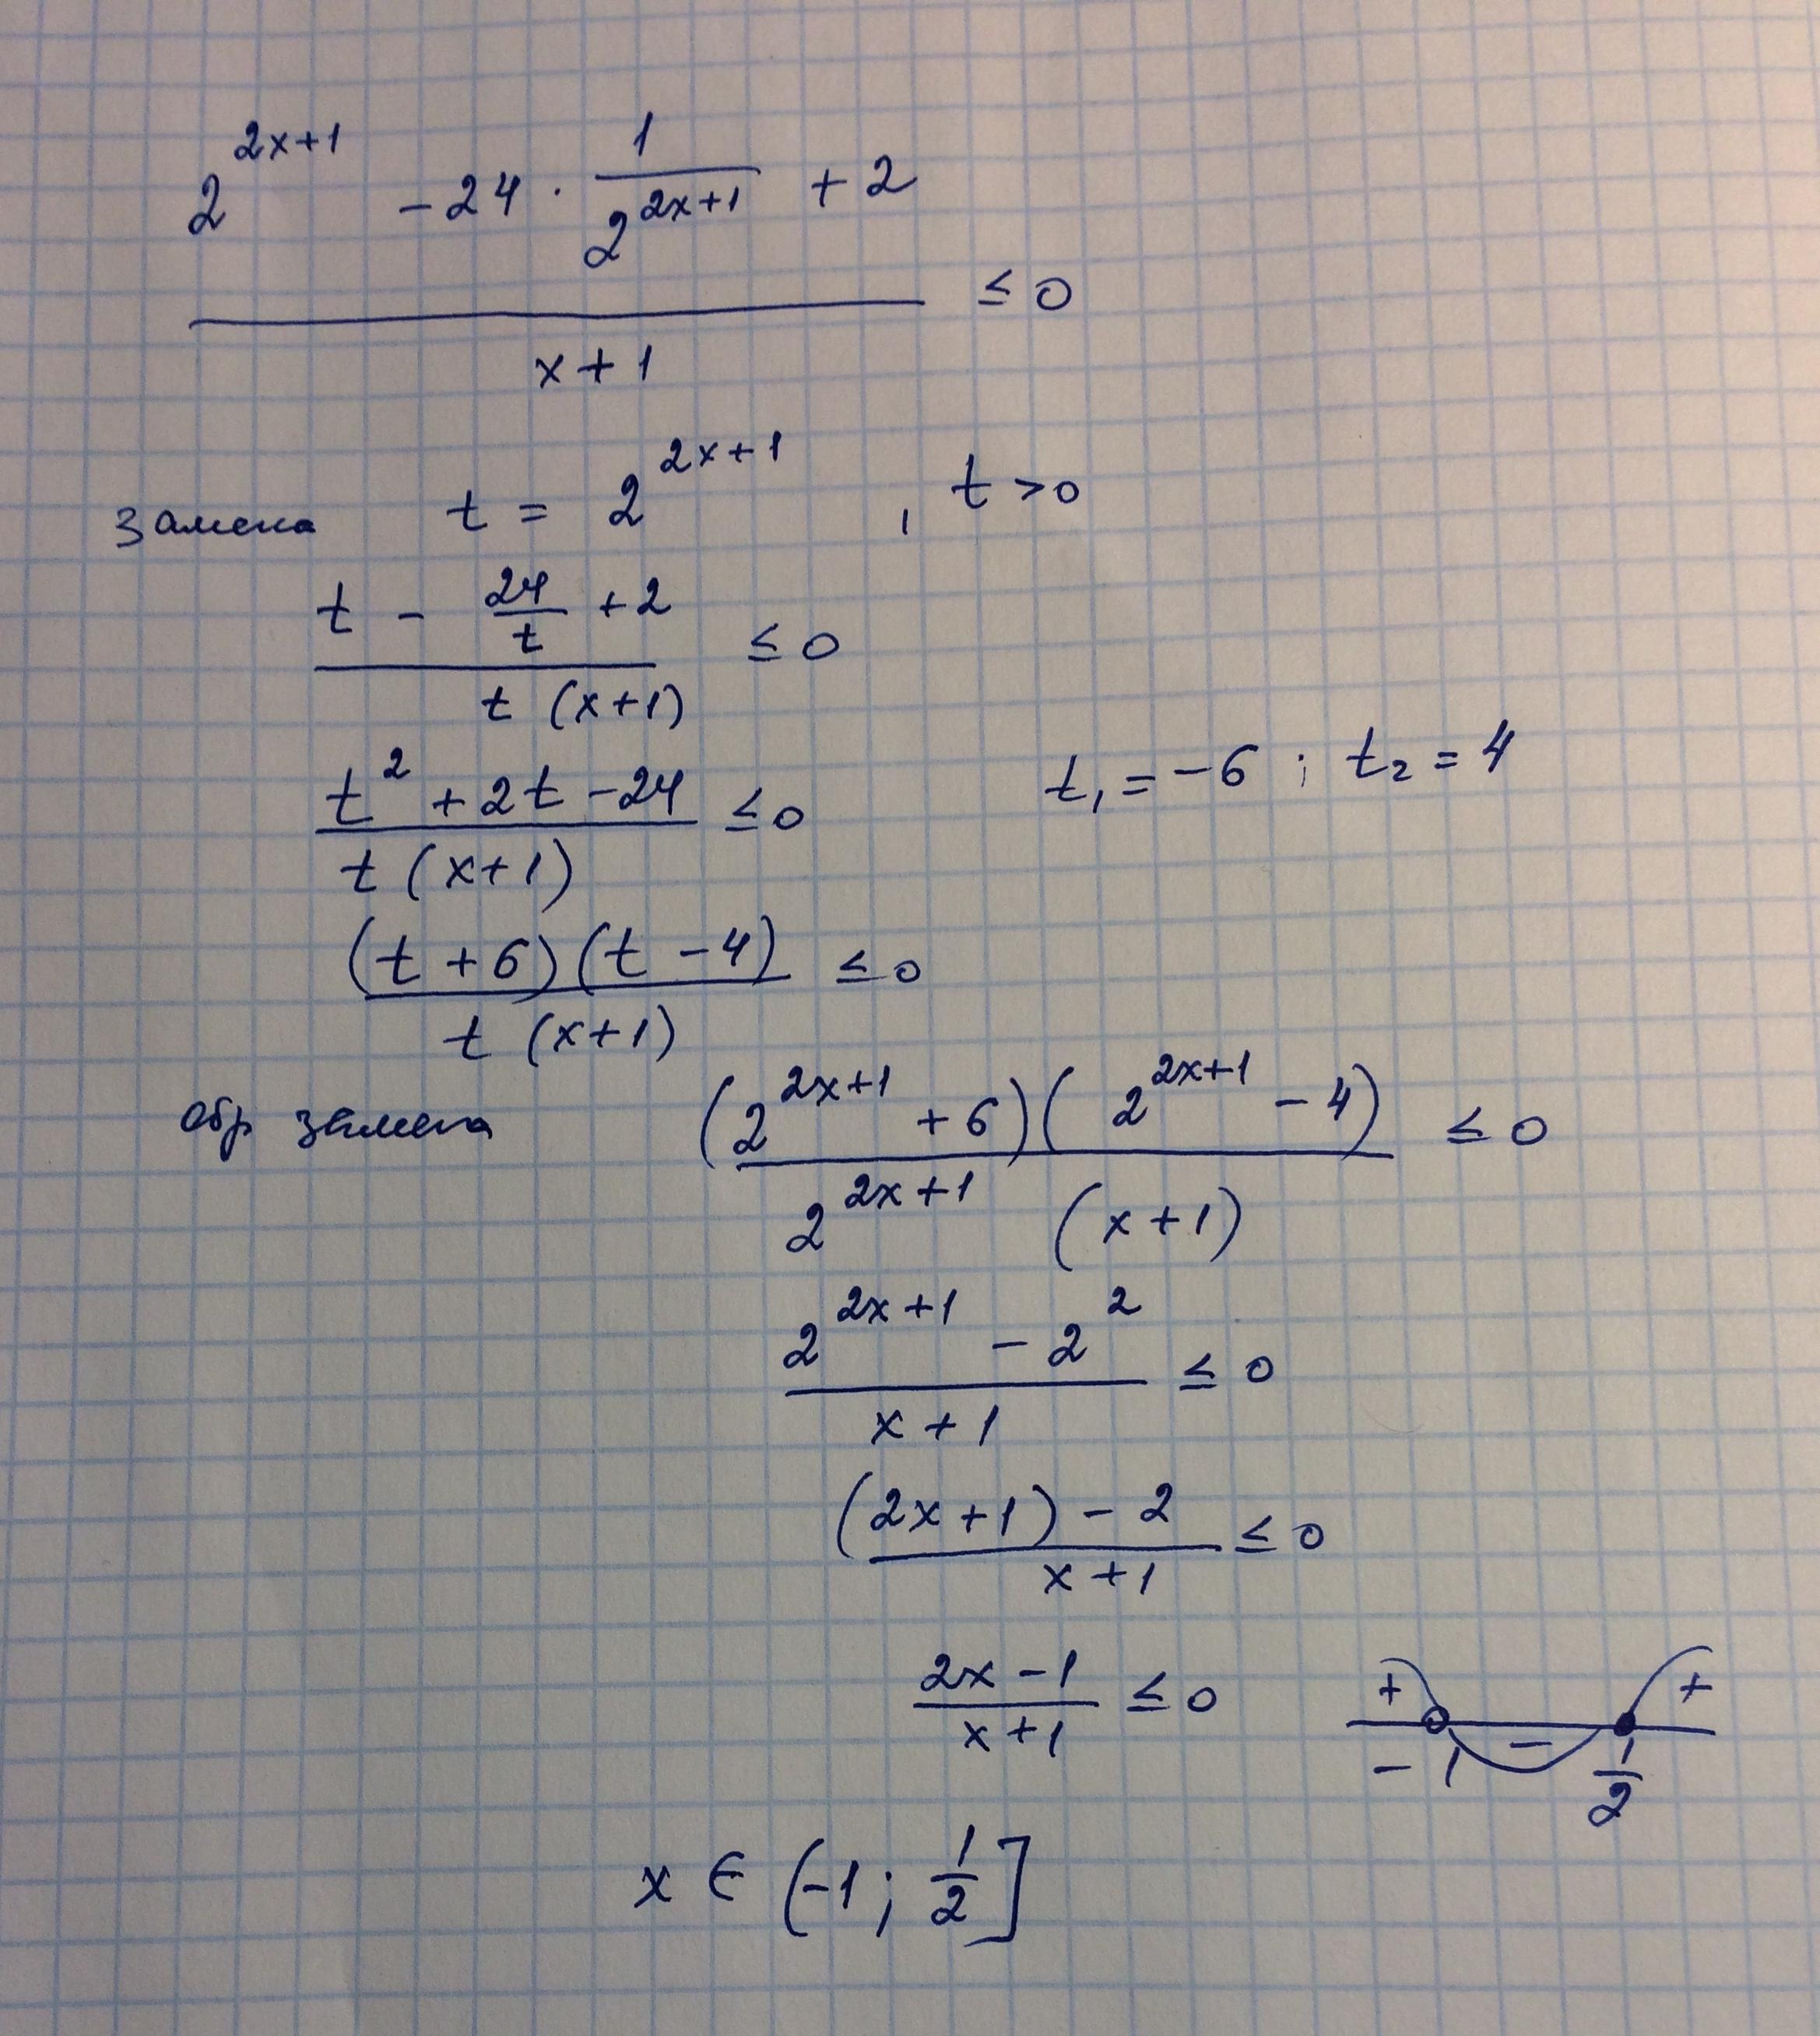 2^{2x+1} - 24 · \frac{1}{2^{2x+1}} + 2
≤ 0
x + 1
замена t = 2^{2x+1} , t > 0
t - \frac{24}{t} + 2 ≤ 0
t (x+1)
t^2 + 2t - 24 ≤ 0 t_1 = -6 ; t_2 = 4
t (x+1)
(t + 6)(t - 4) ≤ 0
t (x+1)
обр замена (2^{2x+1} + 6)(2^{2x+1} - 4) ≤ 0
2^{2x+1} (x+1)
2^{2x+1} - 2^2 ≤ 0
x + 1
(2x+1) - 2 ≤ 0
x + 1
2x - 1 ≤ 0 + - +
x + 1 -1 \frac{1}{2}
x ∈ (-1; \frac{1}{2}]